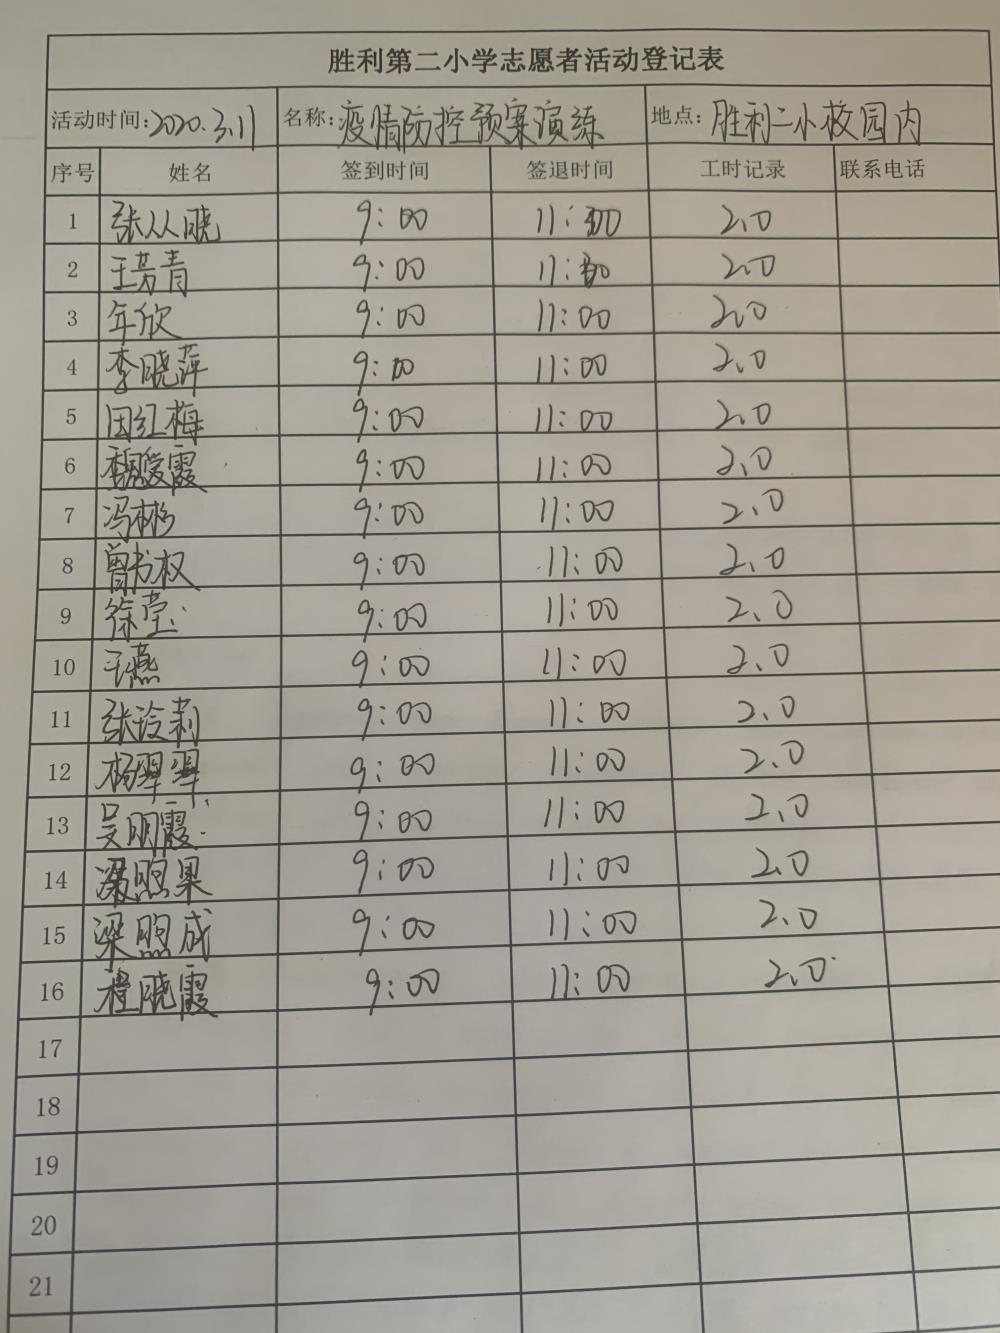 胜利第二小学志愿者活动登记表
活动时间:2020.3.11 名称:疫情防控预案演练 地点:胜利二小校园内
序号 姓名 签到时间 签退时间 工时记录 联系电话
1 张从晓 9:00 11:00 2.0
2 王芳青 9:00 11:00 2.0
3 年欣 9:00 11:00 2.0
4 李晓萍 9:00 11:00 2.0
5 田红梅 9:00 11:00 2.0
6 魏爱霞 9:00 11:00 2.0
7 冯彬 9:00 11:00 2.0
8 曾书权 9:00 11:00 2.0
9 徐莹 9:00 11:00 2.0
10 于燕 9:00 11:00 2.0
11 张玲莉 9:00 11:00 2.0
12 杨翠翠 9:00 11:00 2.0
13 吴明霞 9:00 11:00 2.0
14 梁煦果 9:00 11:00 2.0
15 梁煦成 9:00 11:00 2.0
16 程晓霞 9:00 11:00 2.0
17
18
19
20
21